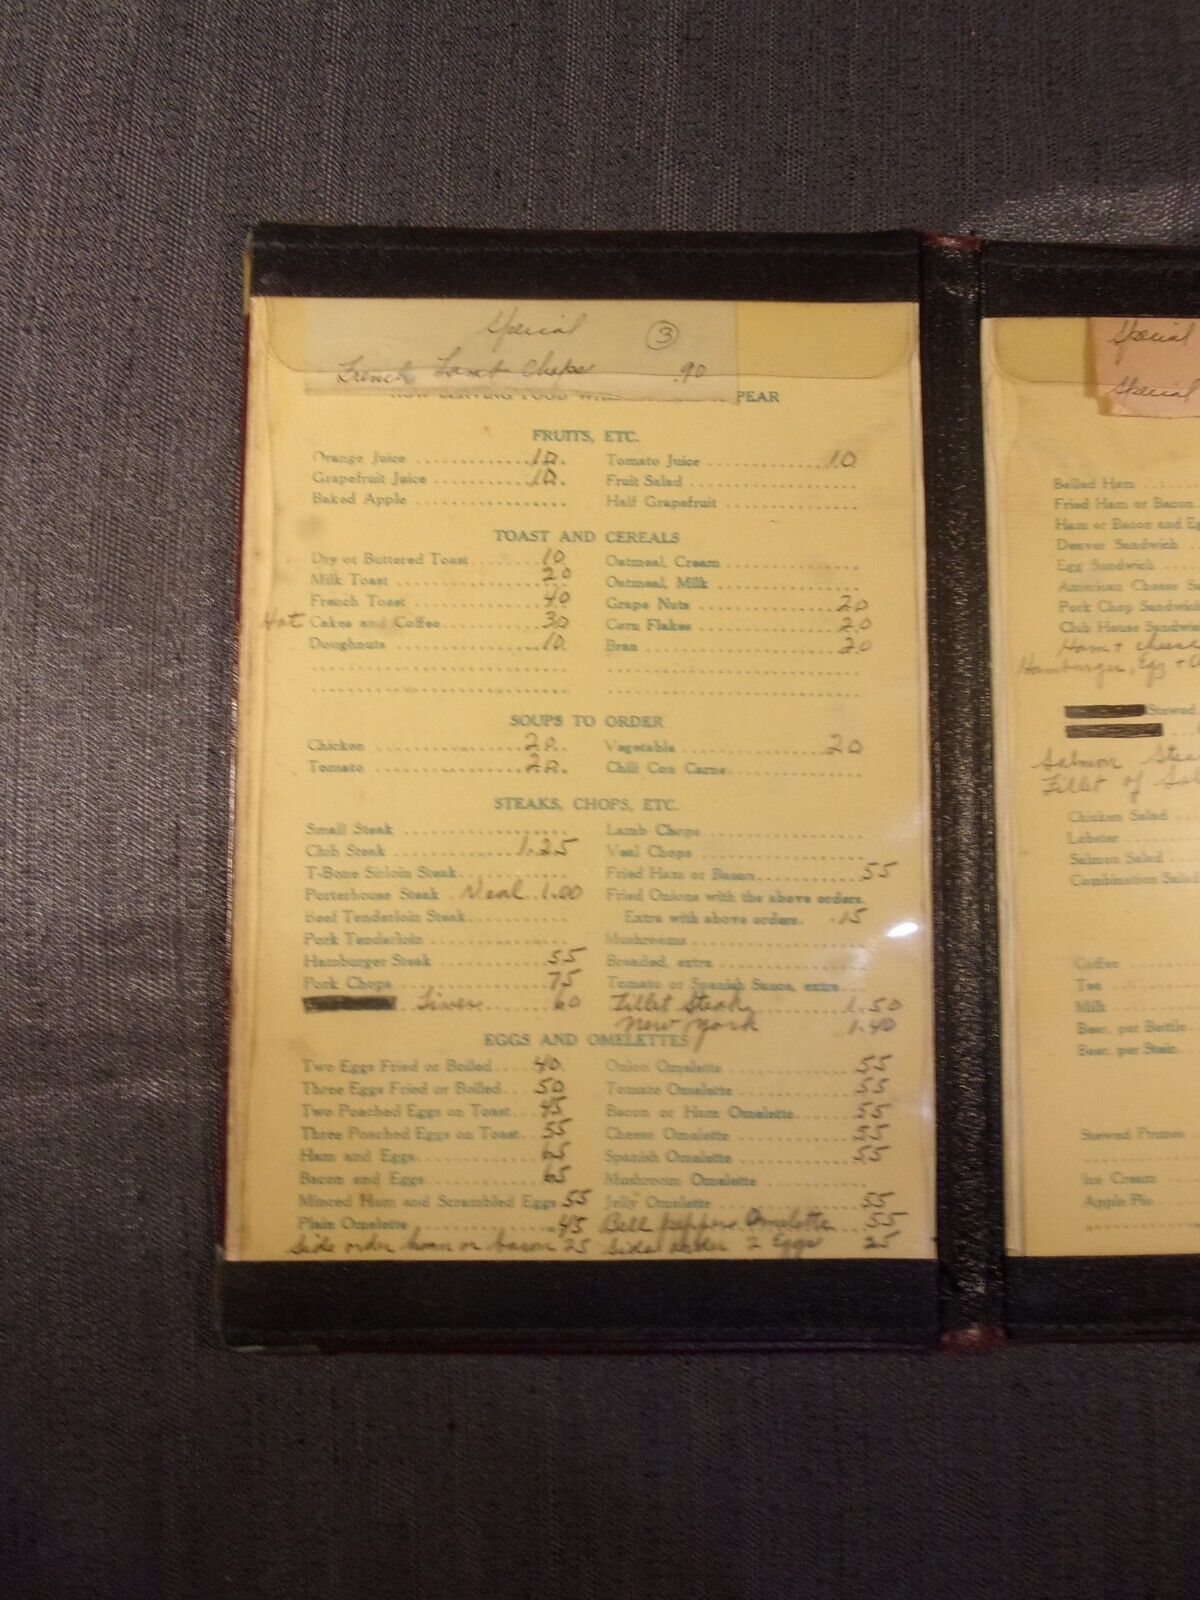 Special ③
French Lamb Chops .90
NOW SERVING FOOD PEAR
FRUITS, ETC.
Orange Juice 10. Tomato Juice 10
Grapefruit Juice 10. Fruit Salad
Baked Apple Half Grapefruit
TOAST AND CEREALS
Dry or Buttered Toast 10 Oatmeal, Cream
Milk Toast 20 Oatmeal, Milk
French Toast 40 Grape Nuts 20
Hot Cakes and Coffee 30 Corn Flakes 20
Doughnuts 10 Bran 20
SOUPS TO ORDER
Chicken 20. Vegetable 20
Tomato 20. Chili Con Carne
STEAKS, CHOPS, ETC.
Small Steak Lamb Chops
Club Steak 1.25 Veal Chops
T-Bone Sirloin Steak Fried Ham or Bacon 55
Porterhouse Steak Veal 1.00 Fried Onions with the above orders.
Beef Tenderloin Steak Extra with above orders. .15
Pork Tenderloin Mushrooms
Hamburger Steak 55 Breaded, extra
Pork Chops 75 Tomato or Spanish Sauce, extra
Liver 60 Fillet Steak 1.50
New York 1.40
EGGS AND OMELETTES
Two Eggs Fried or Boiled 40. Onion Omelette 55
Three Eggs Fried or Boiled 50 Tomato Omelette 55
Two Poached Eggs on Toast 45 Bacon or Ham Omelette 55
Three Poached Eggs on Toast 55 Cheese Omelette 55
Ham and Eggs 65 Spanish Omelette 55
Bacon and Eggs 65 Mushroom Omelette
Minced Ham and Scrambled Eggs 55 Jelly Omelette 55
Plain Omelette .45 Bell peppers Omelette 55
Side order ham or bacon 25 Side order 2 Eggs 25
Special
Special
Boiled Ham
Fried Ham or Bacon
Ham or Bacon and Eg
Denver Sandwich
Egg Sandwich
American Cheese Sa
Pork Chop Sandwich
Club House Sandwic
Ham + cheese
Hamburger, Egg +
Stewed
Salmon Stea
Fillet of Sol
Chicken Salad
Lobster
Salmon Salad
Combination Salad
Coffee
Tea
Milk
Beer, per Bottle
Beer, per Stein
Stewed Prunes
Ice Cream
Apple Pie